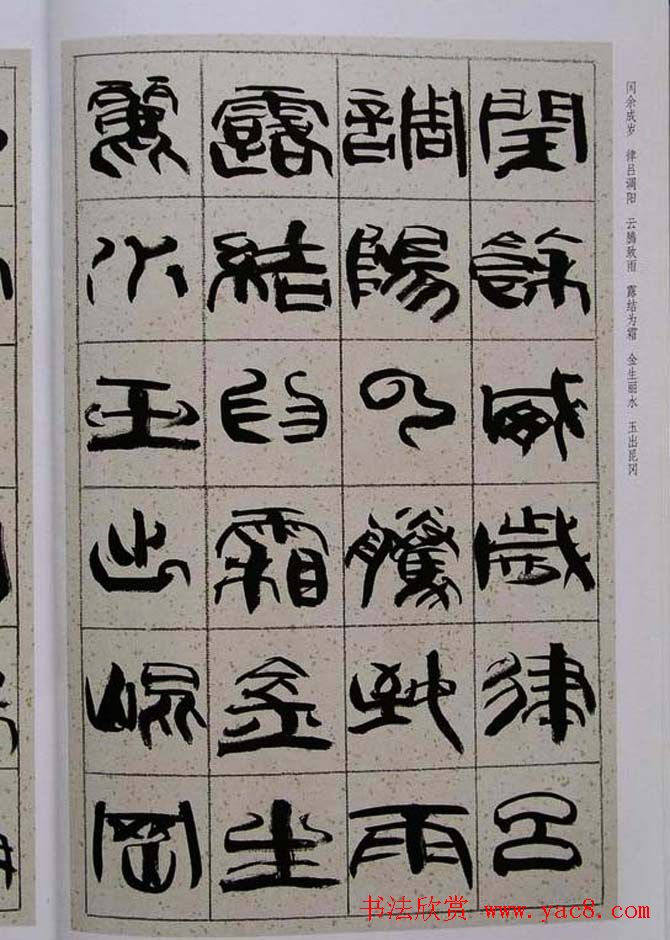 閏餘成歲律呂
調陽雲騰致雨
露結為霜金生
麗水玉出崐岡
闰余成岁 律吕调阳 云腾致雨 露结为霜 金生丽水 玉出昆冈
书法欣赏 www.yac8.com